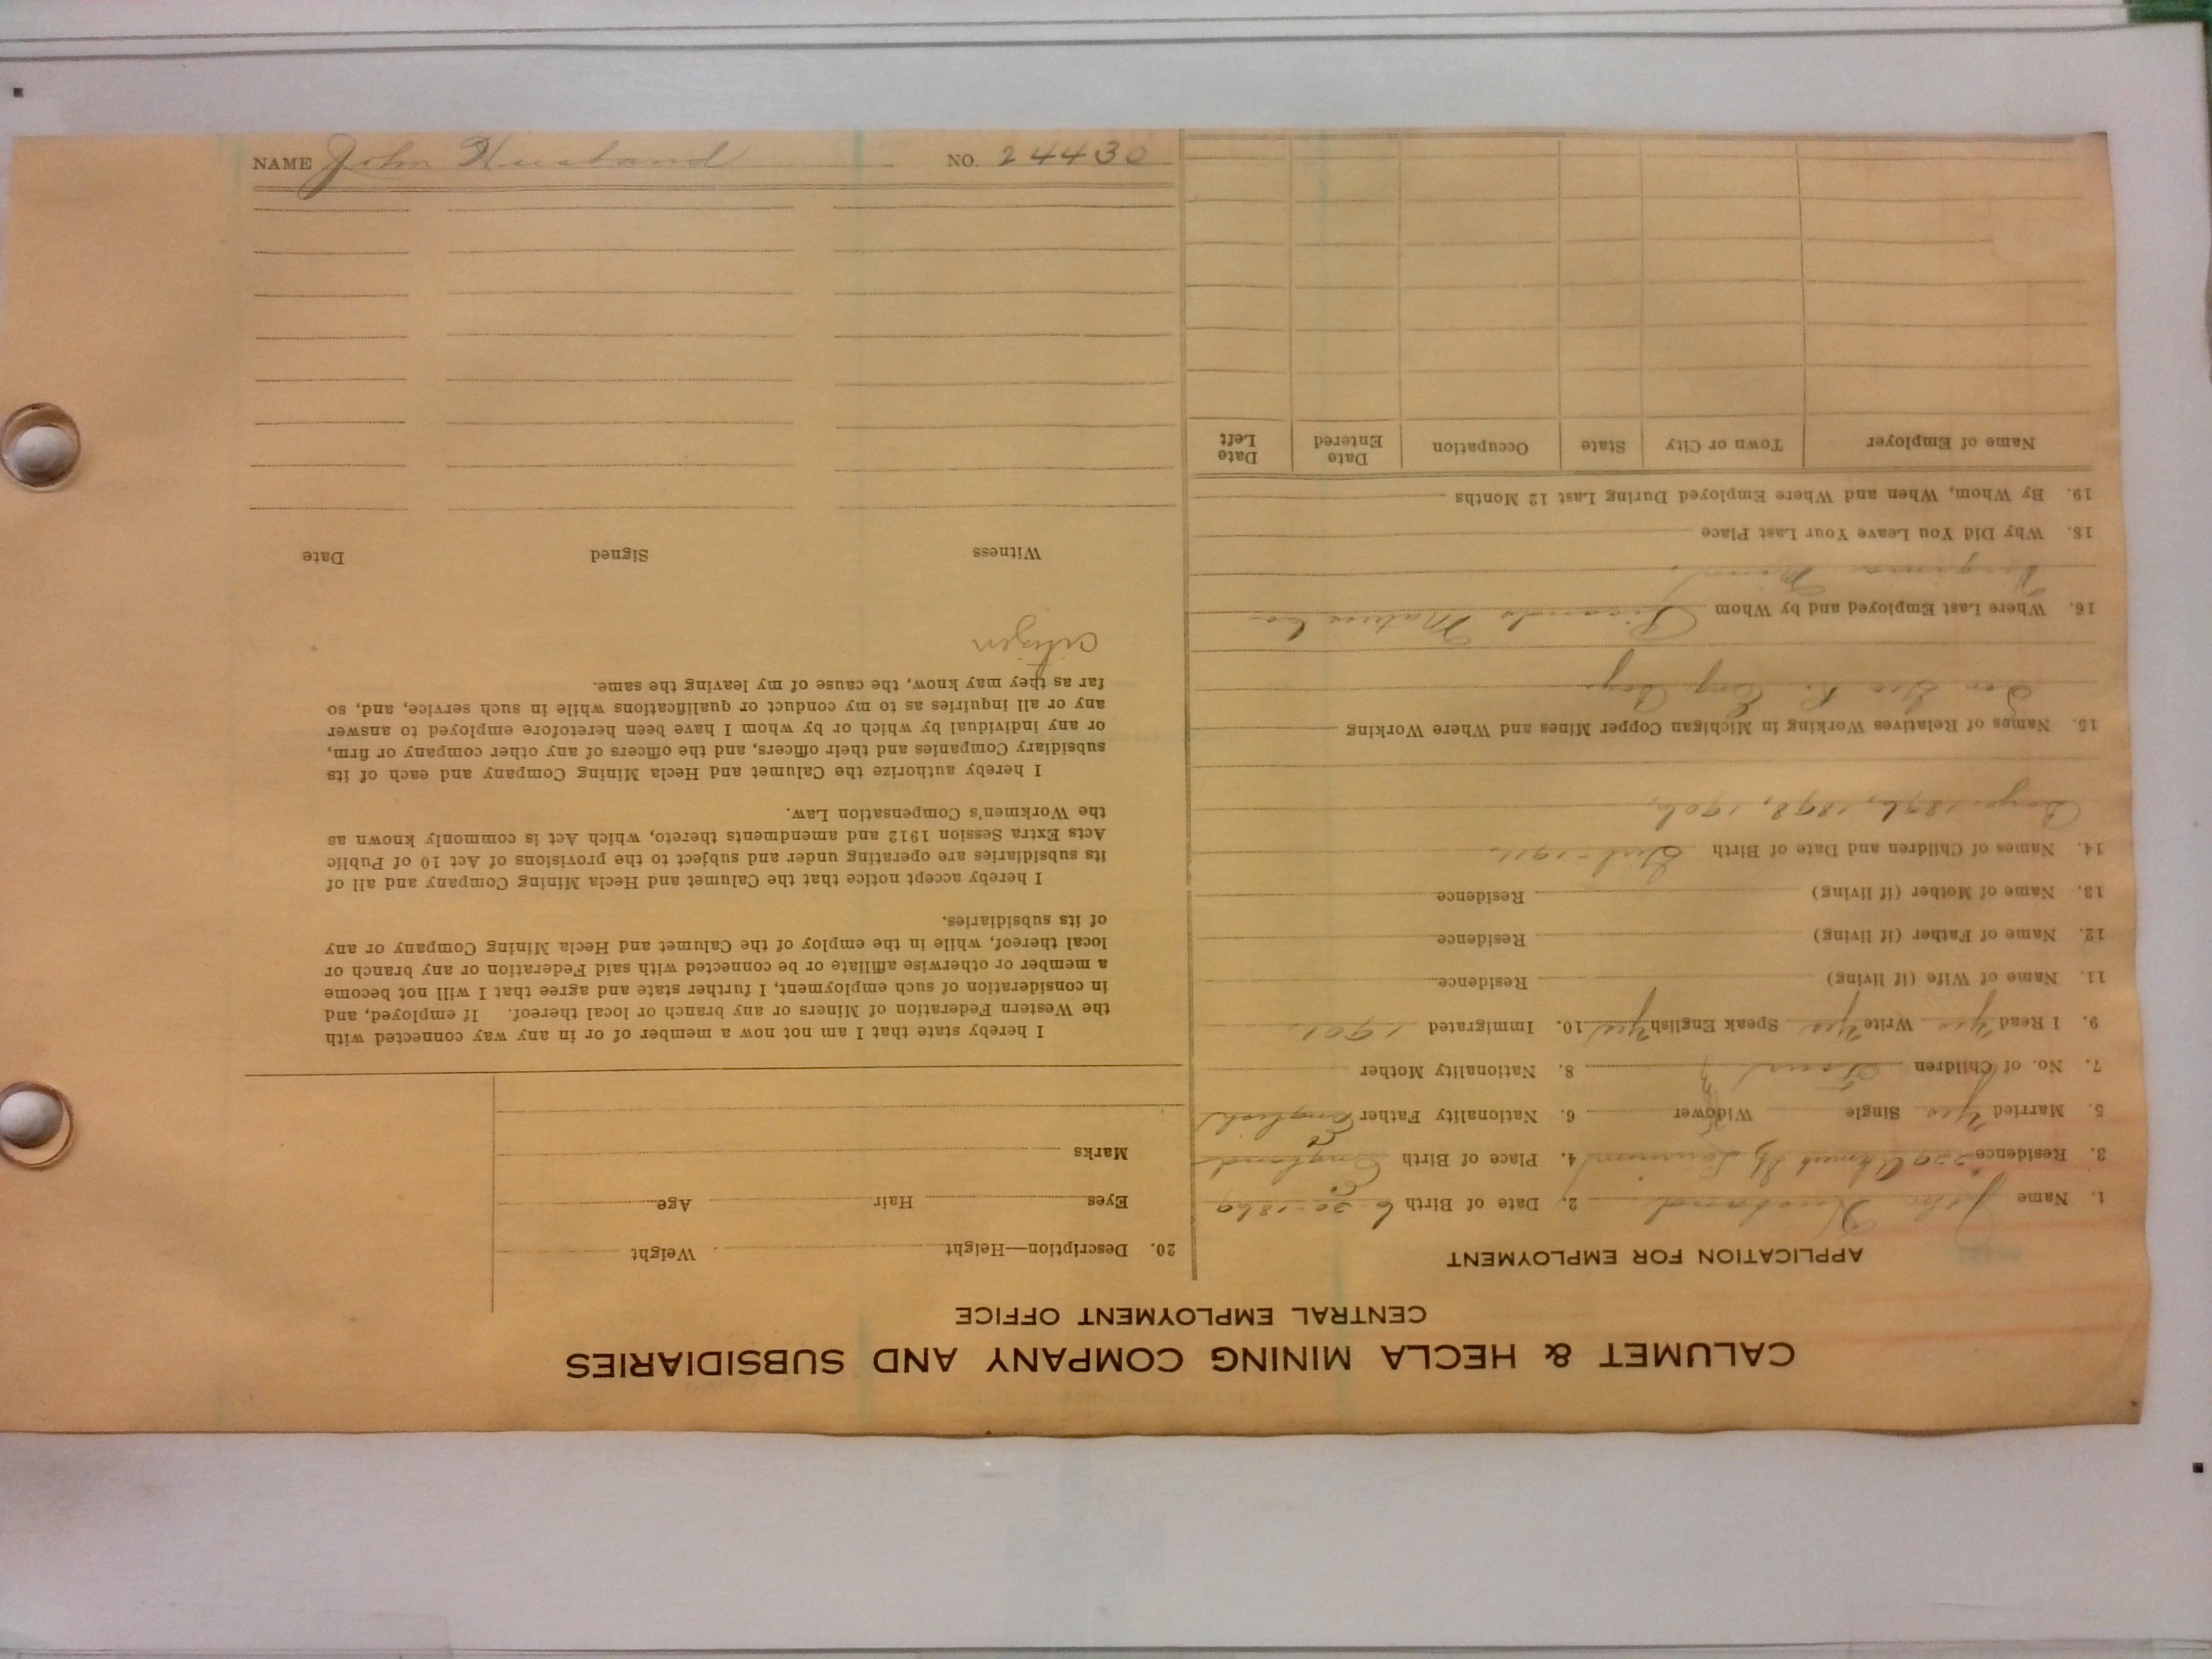 CALUMET & HECLA MINING COMPANY AND SUBSIDIARIES
CENTRAL EMPLOYMENT OFFICE
APPLICATION FOR EMPLOYMENT
1. Name John Husband 2. Date of Birth 6-30-1869
3. Residence 229 St 4. Place of Birth England
5. Married Yes Single Widower 6. Nationality Father English
7. No. of Children Four 8. Nationality Mother
9. I Read Yes Write Yes Speak English Yes 10. Immigrated 1901
11. Name of Wife (if living) Residence
12. Name of Father (if living) Residence
13. Name of Mother (if living) Residence
14. Names of Children and Date of Birth Girl-1911
Boys-1896, 1898, 1906
15. Names of Relatives Working in Michigan Copper Mines and Where Working
Son
16. Where Last Employed and by Whom
Virginia Minn.
18. Why Did You Leave Your Last Place
19. By Whom, When and Where Employed During Last 12 Months
Name of Employer Town or City State Occupation Date Entered Date Left
20. Description—Height Weight
Eyes Hair Age
Marks
I hereby state that I am not now a member of or in any way connected with
the Western Federation of Miners or any branch or local thereof. If employed, and
in consideration of such employment, I further state and agree that I will not become
a member or otherwise affiliate or be connected with said Federation or any branch or
local thereof, while in the employ of the Calumet and Hecla Mining Company or any
of its subsidiaries.
I hereby accept notice that the Calumet and Hecla Mining Company and all of
its subsidiaries are operating under and subject to the provisions of Act 10 of Public
Acts Extra Session 1912 and amendments thereto, which Act is commonly known as
the Workmen's Compensation Law.
I hereby authorize the Calumet and Hecla Mining Company and each of its
subsidiary Companies and their officers, and the officers of any other company or firm,
or any individual by which or by whom I have been heretofore employed to answer
any or all inquiries as to my conduct or qualifications while in such service, and, so
far as they may know, the cause of my leaving the same.
Citizen
Witness Signed Date
NAME John Husband NO. 24430